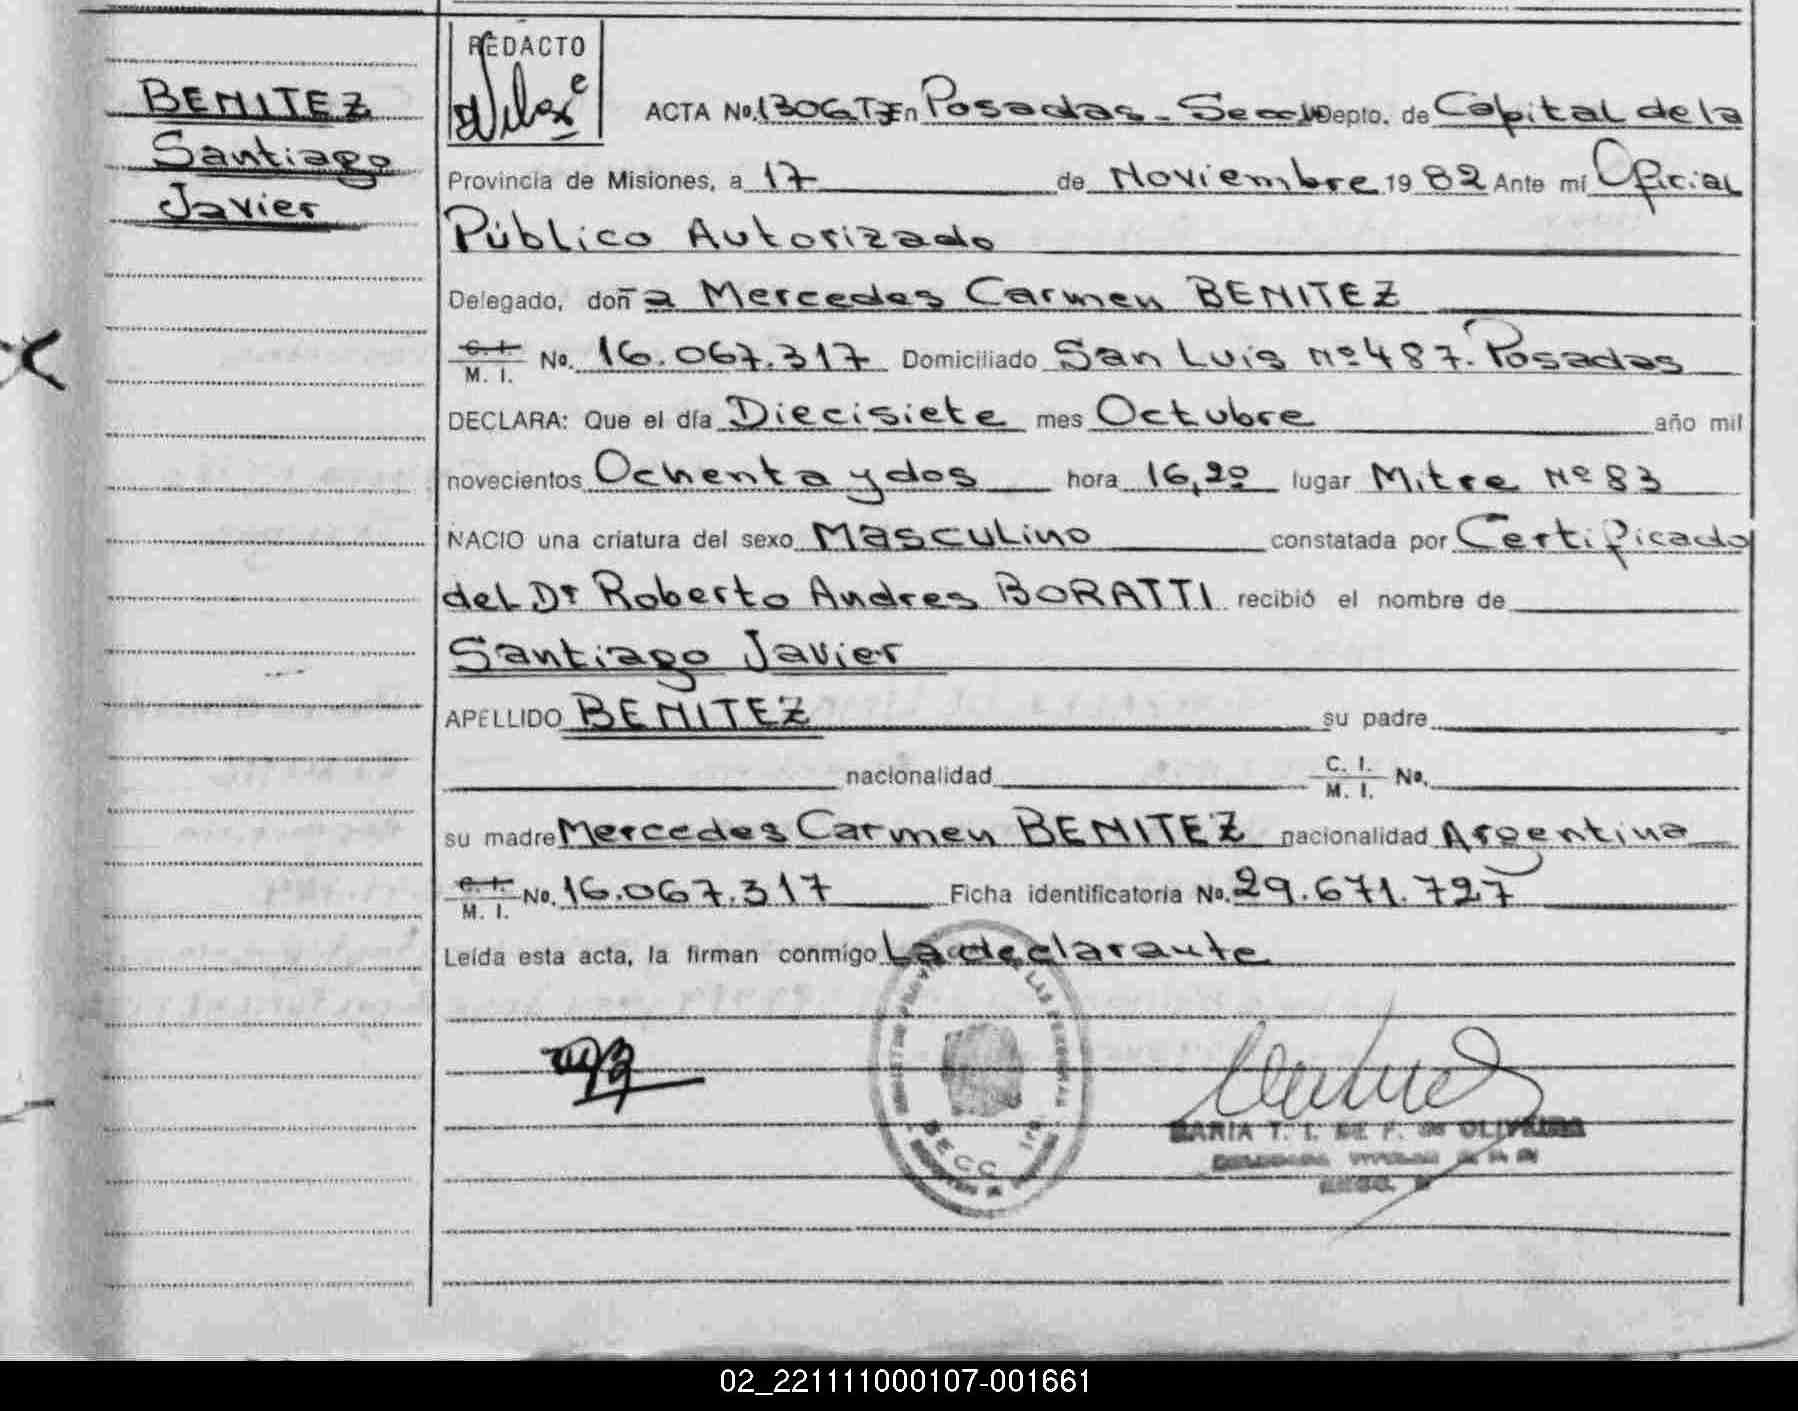 BENITEZ
Santiago
Javier
REDACTO
ACTA No. 1306 TI En Posadas - Secc Depto. de Capital de la
Provincia de Misiones, a 17 de Noviembre 1982 Ante mí Oficial
Público Autorizado
Delegado, doña Mercedes Carmen BENITEZ
C. I. M. I. No. 16.067.317 Domiciliado San Luis Nº 487. Posadas
DECLARA: Que el día Diecisiete mes Octubre año mil
novecientos Ochenta y dos hora 16,20 lugar Mitre Nº 83
NACIO una criatura del sexo Masculino constatada por Certificado
del Dr Roberto Andres BORATTI recibió el nombre de
Santiago Javier
APELLIDO BENITEZ su padre
nacionalidad C. I. M. I. No.
su madre Mercedes Carmen BENITEZ nacionalidad Argentina
C. I. M. I. No. 16.067.317 Ficha identificatoria No. 29.671.727
Leída esta acta, la firman conmigo La declarante
DE LAS PERSONAS
SECC. 1ra.
MARIA T. I. DE F. de OLIVEIRA
DELEGADA TITULAR
02_221111000107-001661